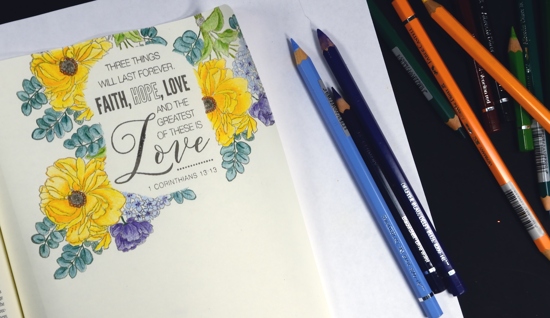 THREE THINGS
WILL LAST FOREVER.
FAITH, HOPE, LOVE
AND THE
GREATEST
OF THESE IS
Love
1 CORINTHIANS 13:13